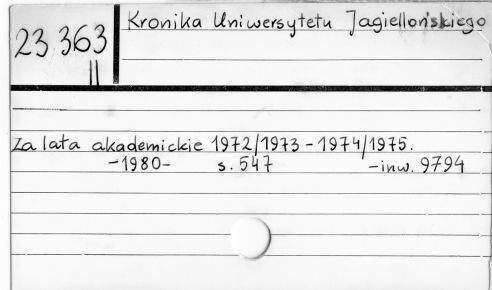 23 363
II
Kronika Uniwersytetu Jagiellońskiego
Za lata akademickie 1972/1973 - 1974/1975.
-1980- s. 547 -inw. 9794